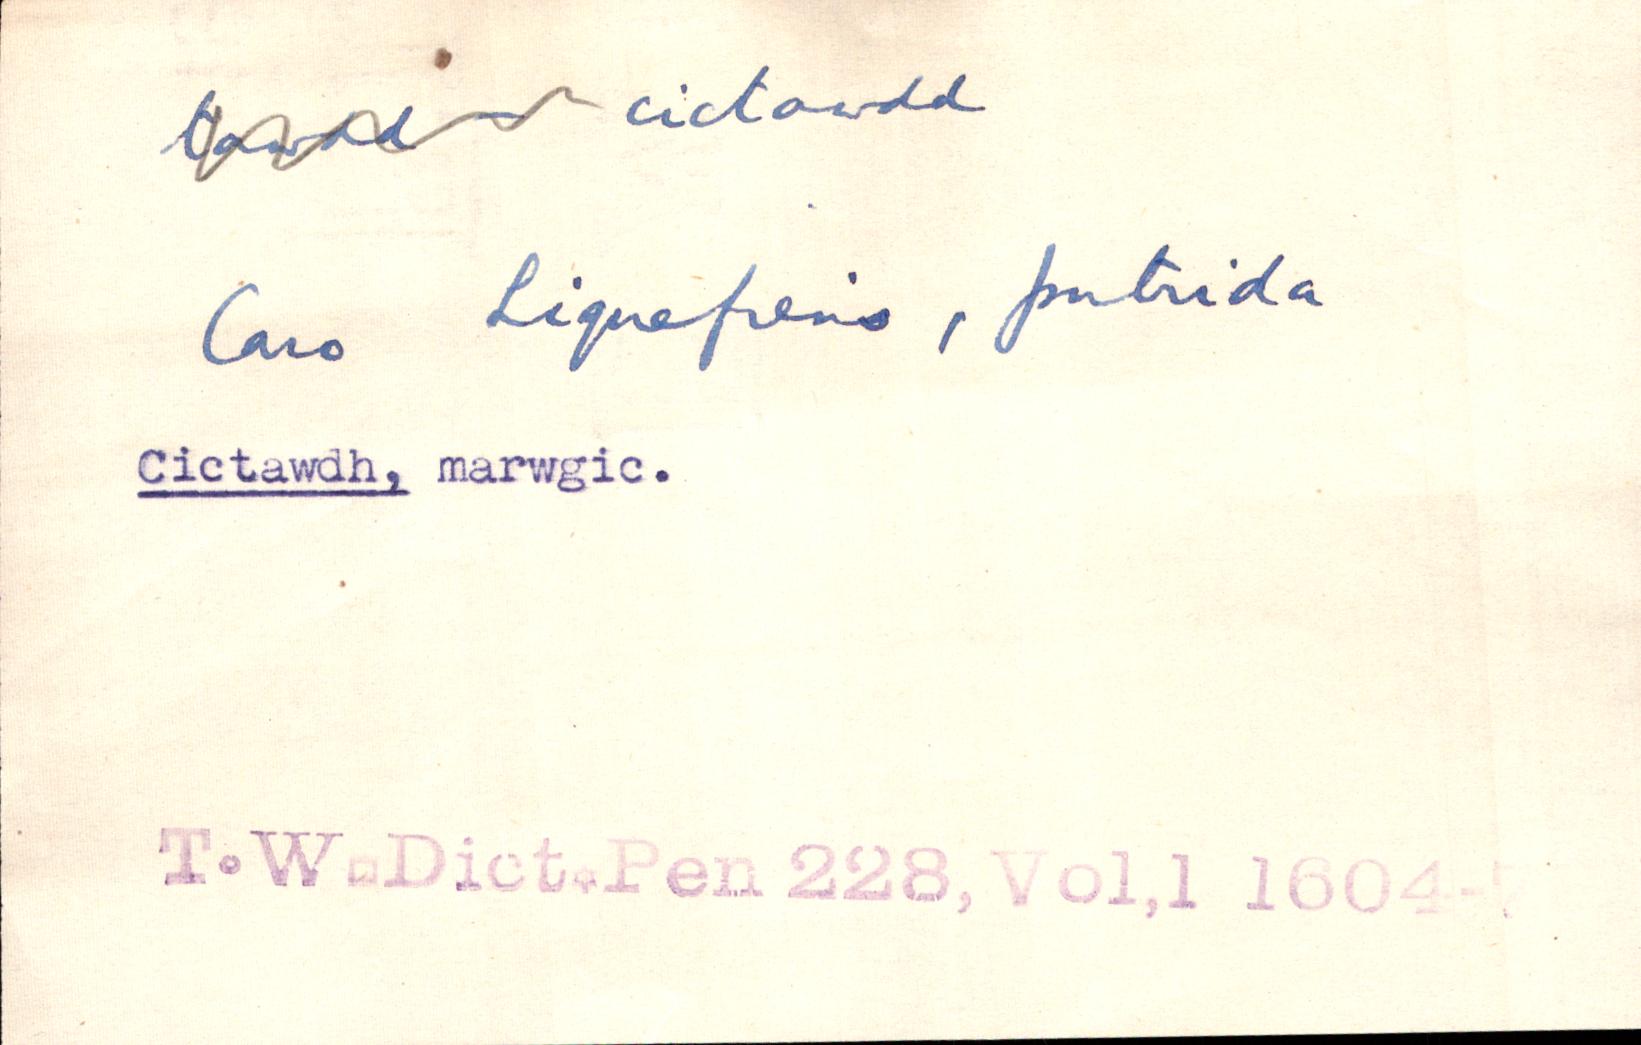 tawdd cictawdd
Caro Liquefiens, putrida
Cictawdh, marwgic.
T.W.Dict.Pen 228, Vol,1 1604-7